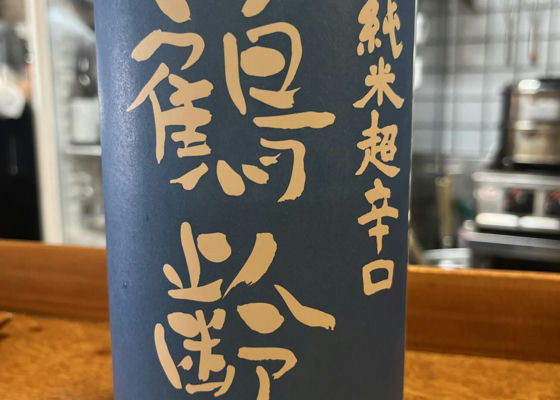 純米超辛口
鶴齢